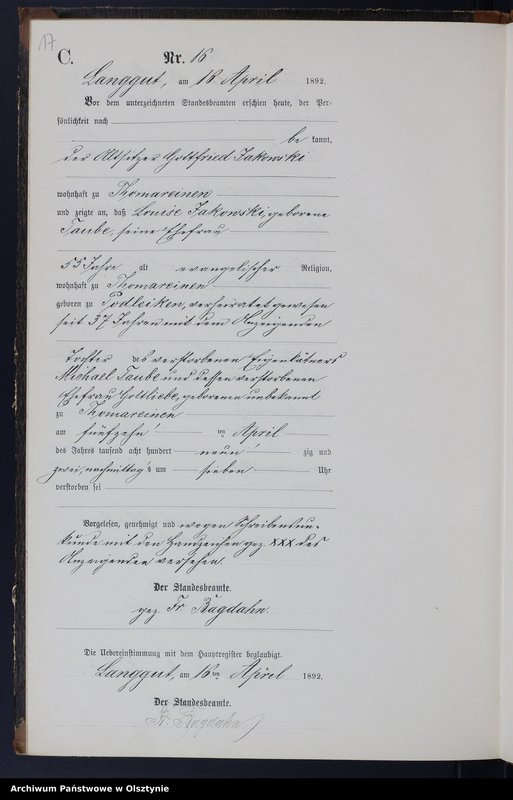 17
C.
Nr. 16
Langgut, am 16. April 1892.
Vor dem unterzeichneten Standesbeamten erschien heute, der Per-
sönlichkeit nach
be kannt,
der Altsitzer Gottfried Jakowski
wohnhaft zu Thomareinen
und zeigte an, daß Louise Jakowski, geborene
Taube, seine Ehefrau
55 Jahre alt evangelischer Religion,
wohnhaft zu Thomareinen
geboren zu Podleiken, verheiratet gewesen
seit 37 Jahren mit dem Anzeigenden
Tochter des verstorbenen Eigenkätners
Michael Taube und dessen verstorbenen
Ehefrau Gottliebe, geborenen unbekannt
zu Thomareinen
am fünfzehn ten April
des Jahres tausend acht hundert neun zig und
zwei, nachmittag s um sieben Uhr
verstorben sei
Vorgelesen, genehmigt und wegen Schreibensun-
kunde mit den Handzeichen gez. XXX des
Anzeigenden versehen.
Der Standesbeamte.
gez. Fr. Bagdahn.
Die Uebereinstimmung mit dem Hauptregister beglaubigt.
Langgut, am 16ten April 1892.
Der Standesbeamte.
Fr. Bagdahn
Archiwum Państwowe w Olsztynie